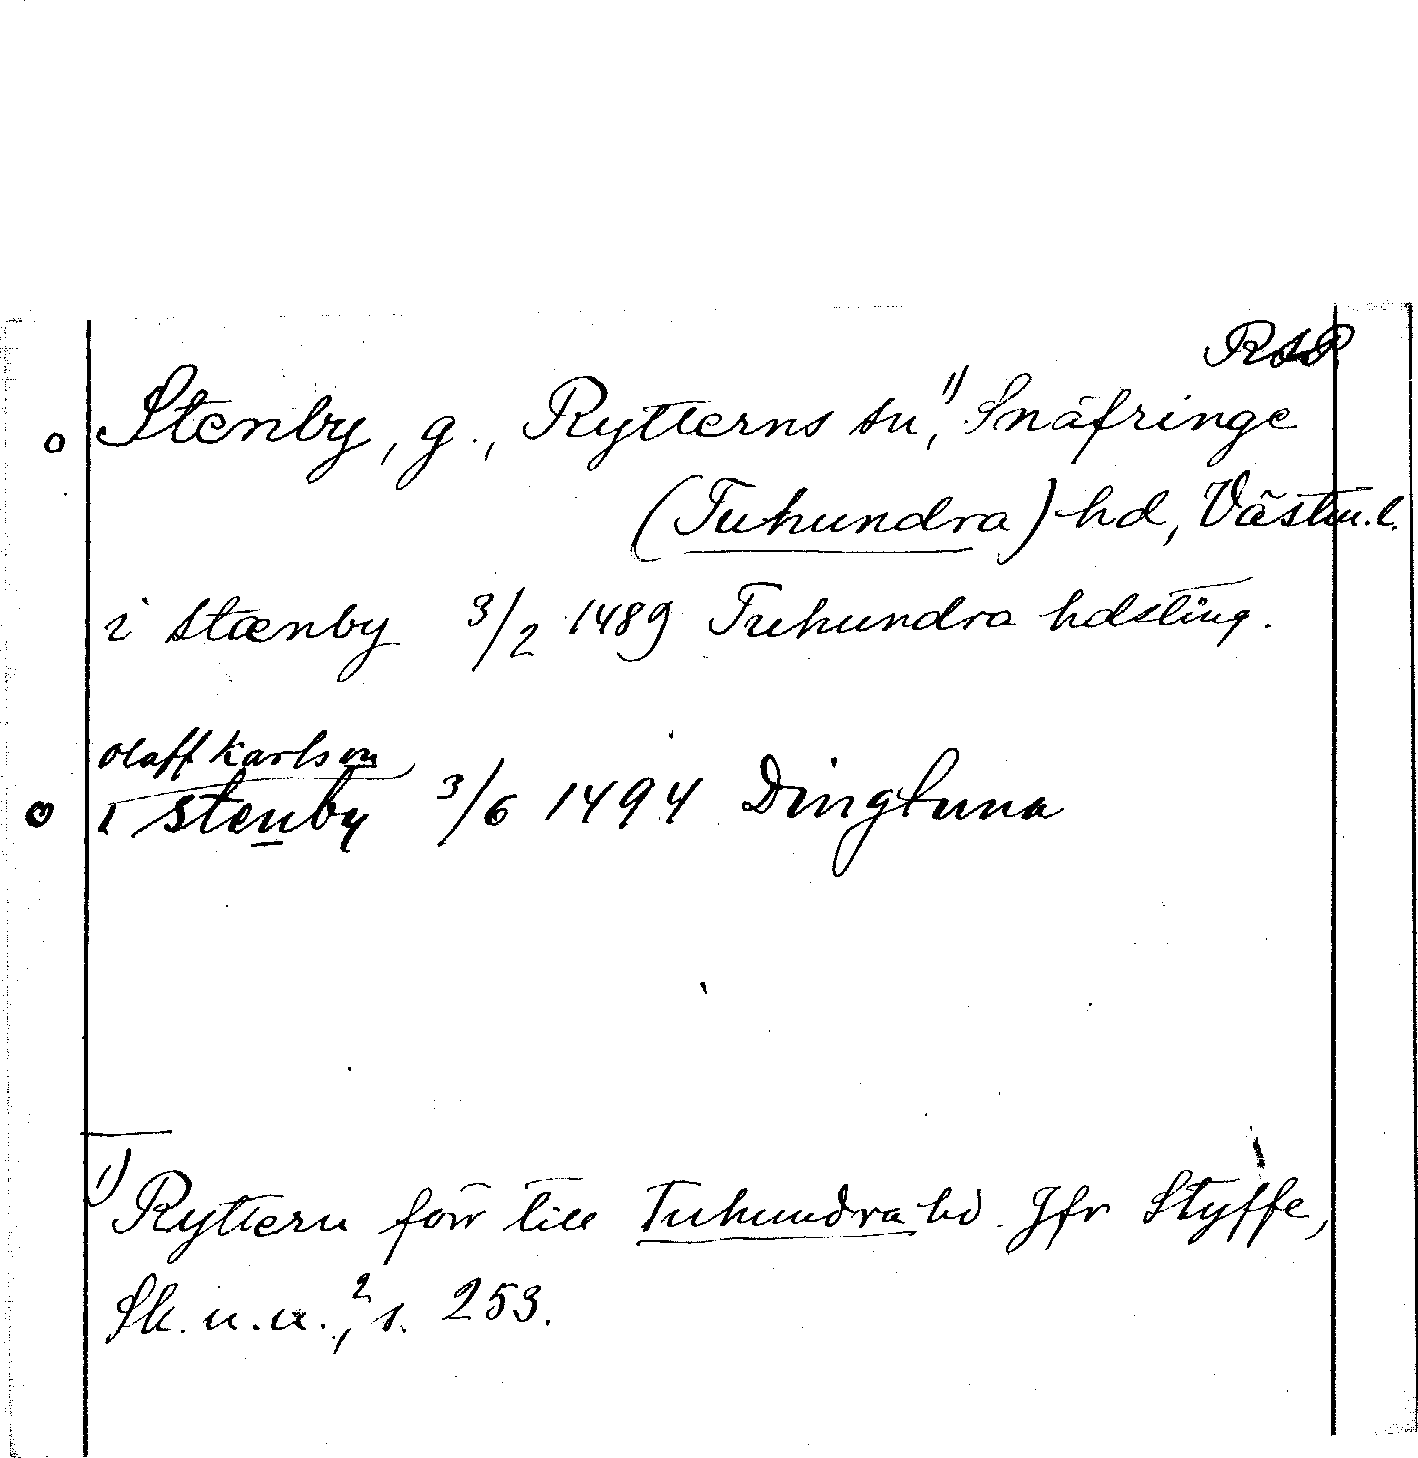 RAP
o Stenby, g., Rytterns sn,¹⁾ Snäfringe
(Tuhundra) hd, Västm.l.
i stænby 3/2 1489 Tuhundra hdsting.
olaff karlson
o i stenby 3/6 1494 Dingtuna
¹⁾ Ryttern förr till Tuhundra hd. Jfr Styffe,
Sk. u. u.,² s. 253.